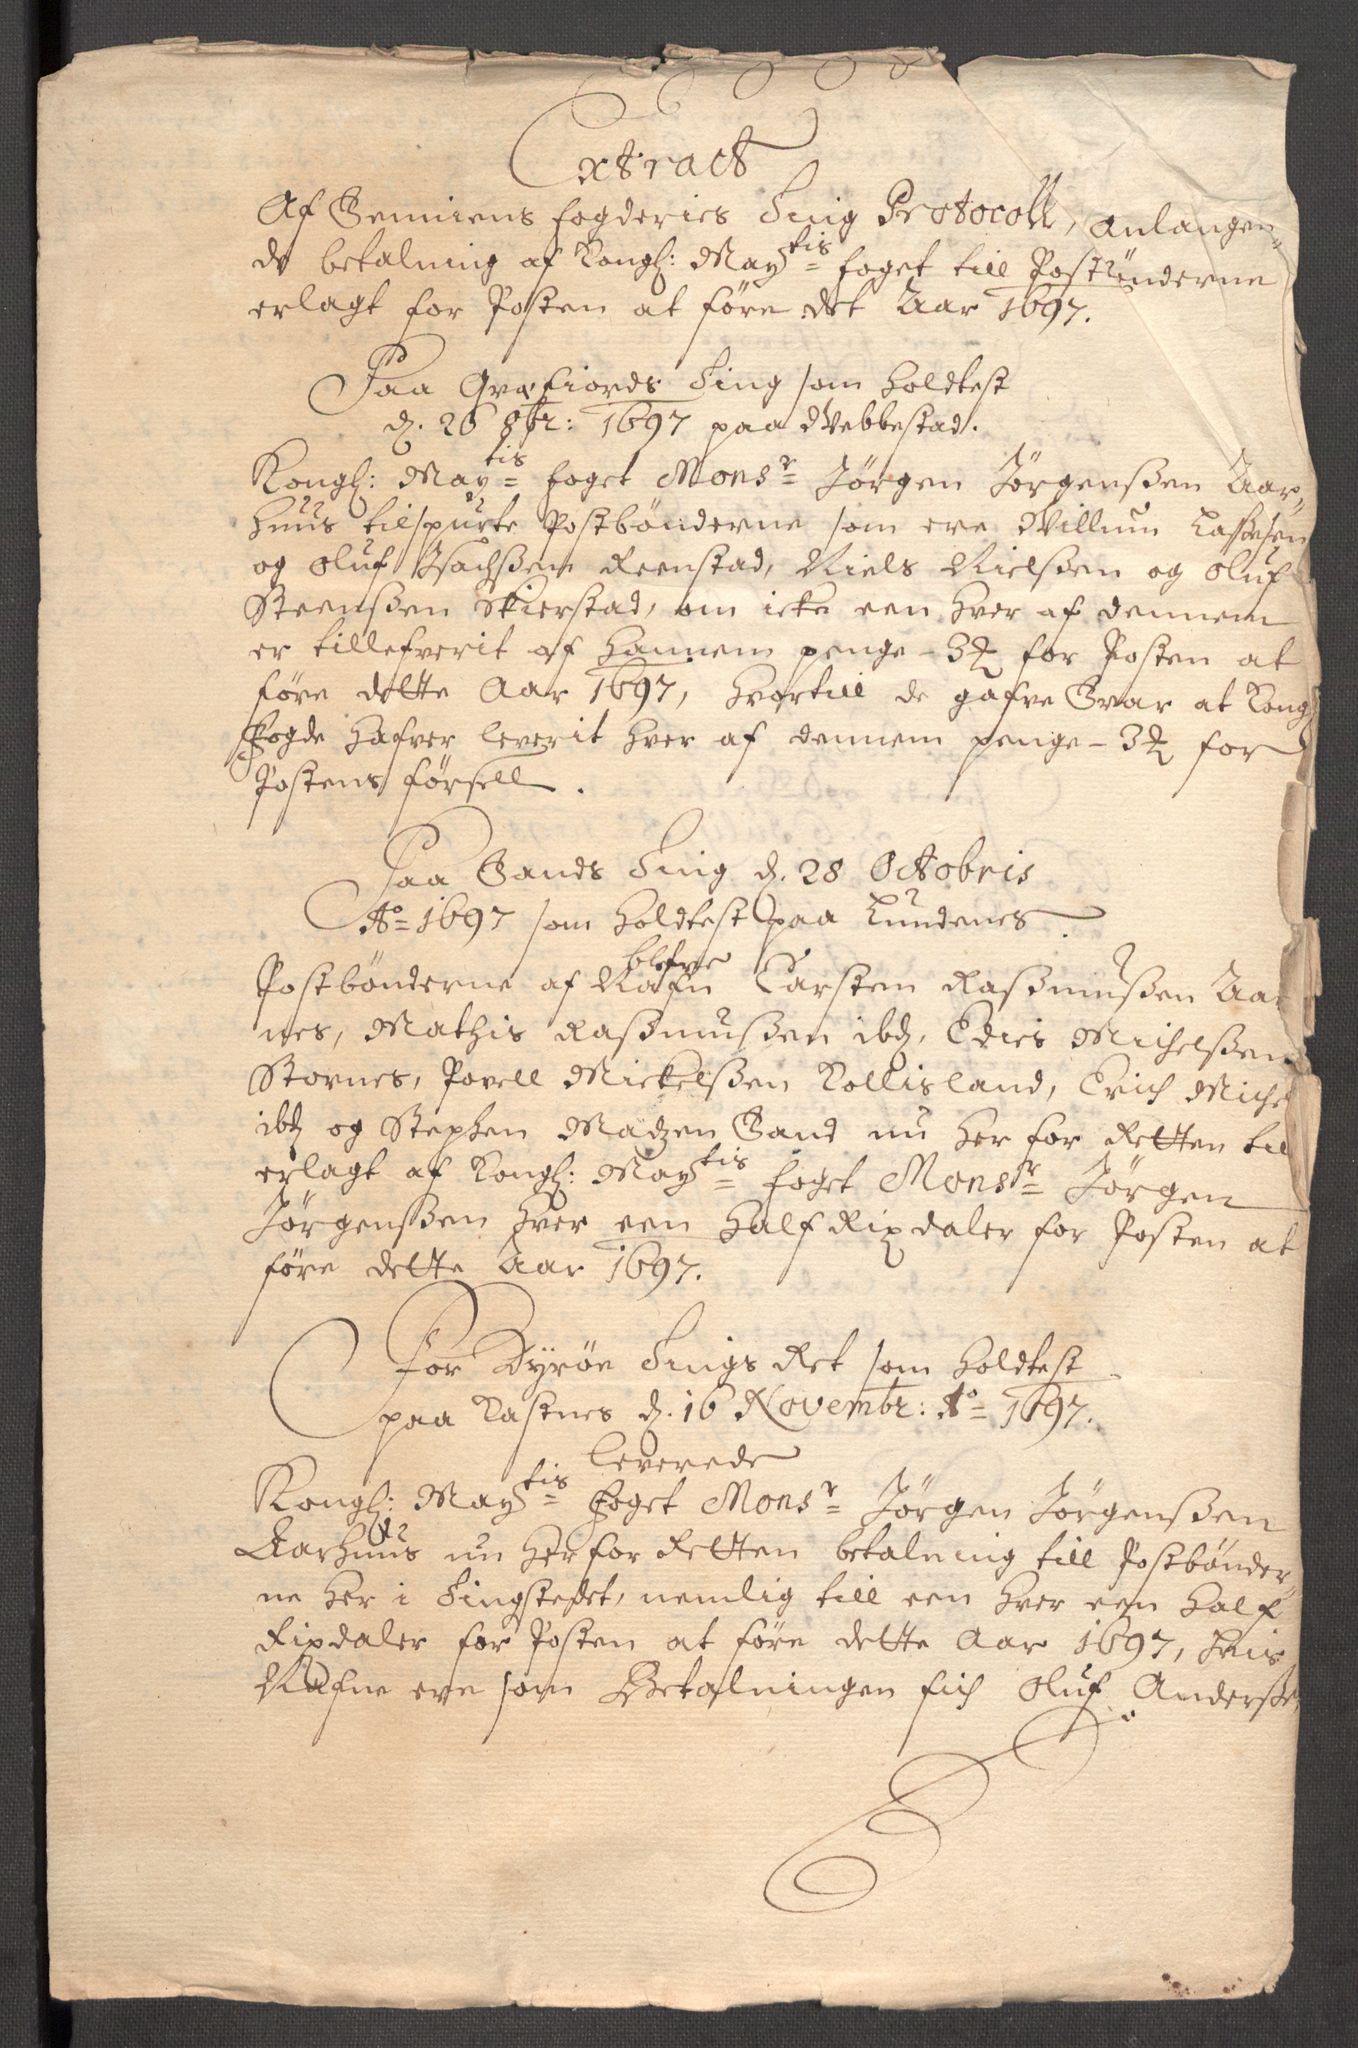 Extract
Af Senniens fogderies Ting Protocoll, anlangen¬
de betalning af Kongl: May^tis foget till Postbönderne
erlagt for Posten at före det Aar 1697.
Paa Græfiords Ting som holdtest
d. 26 8br: 1697 paa Webbestad.
Kongl: May^tis foget Mons^r Jörgen Jörgenßen Aar¬
huus tilspurte Postbönderne som ere Willum Laßesen
og Oluf Isachßen Reenstad, Niels Nielßen og Oluf
Steenßen Skierstad, om icke een hver af dennem
er tillefverit af hannem penge - 3 for Posten at
före dette Aar 1697, hvortill de gafve Svar at Kongl
Fogde hafver leverit hver af dennem penge - 3 for
Postens försell.
Paa Sands Ting d. 28 Octobris
A° 1697 som holdtest paa Lundenes.
blefve
Postbönderne af Nafn Carsten Raßmußen Aar
nes, Mathis Raßmußen ibd, Edies Michelßen
Stornes, Povell Mickelßen Rollisland, Erich Michel
ibd og Stephen Madzen Sand nu her for Retten til
erlagt af Kongl: May^tis foget Mons^r Jörgen
Jörgenßen hver een half Rixdaler for Posten at
före dette Aar 1697.
For Dyröe Tings Ret som holdtest
paa Kastnes d. 16 Novembr: A° 1697.
leverede
Kongl: May^tis Foget Mons^r Jörgen Jörgenßen
Aarhuus nu her for Retten betalning till Postbönder¬
ne her i Tingstedet, nemlig till een hver een half
Rixdaler for Posten at före dette Aar 1697, hvis
Nafne ere som Betalningen fich Oluf Anderße